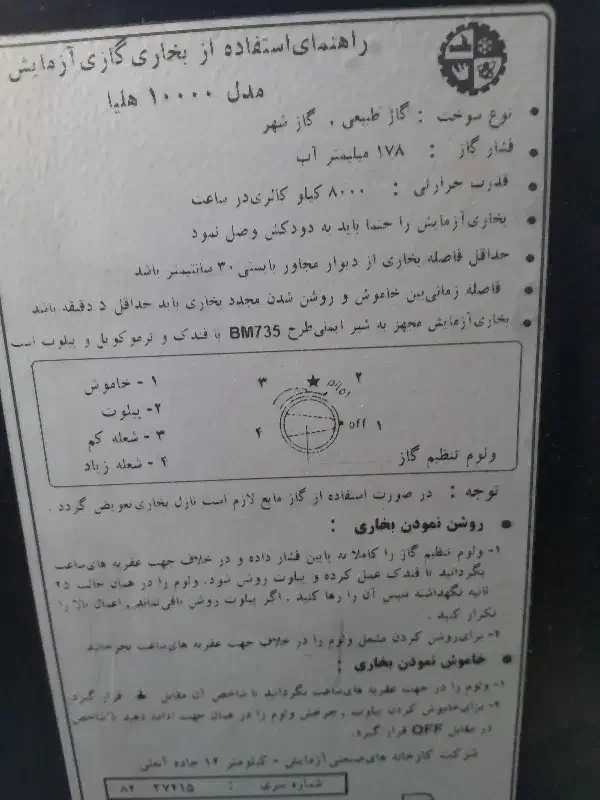 راهنمای استفاده از بخاری گازی آزمایش
مدل ۱۰۰۰۰ هلیا
• نوع سوخت : گاز طبیعی ، گاز شهر
• فشار گاز : ۱۷۸ میلیمتر آب
• قدرت حرارتی : ۸۰۰۰ کیلو کالری در ساعت
• بخاری آزمایش را حتما باید به دودکش وصل نمود
• حداقل فاصله بخاری از دیوار مجاور بایستی ۳۰ سانتیمتر باشد
• فاصله زمانی بین خاموش و روشن شدن مجدد بخاری باید حداقل ۵ دقیقه باشد
• بخاری آزمایش مجهز به شیر ایمنی طرح BM735 با فندک و ترموکوپل و پیلوت است
۱ - خاموش
۲- پیلوت
۳ - شعله کم
۴ - شعله زیاد
۳ ★ pilot ۲
۴ off ۱
ولوم تنظیم گاز
توجه : در صورت استفاده از گاز مایع لازم است نازل بخاری تعویض گردد .
• روشن نمودن بخاری :
۱- ولوم تنظیم گاز را کاملا به پایین فشار داده و در خلاف جهت عقربه های ساعت
بگردانید تا فندک عمل کرده و پیلوت روشن شود. ولوم را در همان حالت ۲۵
ثانیه نگهداشته سپس آن را رها کنید . اگر پیلوت روشن باقی نماند , اعمال بالا را
تکرار کنید .
۲- برای روشن کردن مشعل ولوم را در خلاف جهت عقربه های ساعت بچرخانید
• خاموش نمودن بخاری :
۱- ولوم را در جهت عقربه های ساعت بگردانید تا شاخص آن مقابل ★ قرار گیرد.
۲- برای خاموش کردن پیلوت , چرخش ولوم را در همان جهت ادامه دهید تا شاخص
در مقابل OFF قرار گیرد.
شرکت کارخانه های صنعتی آزمایش - کیلومتر ۱۲ جاده آبعلی
شماره سری : ۲۷۴۱۵ ۸۲